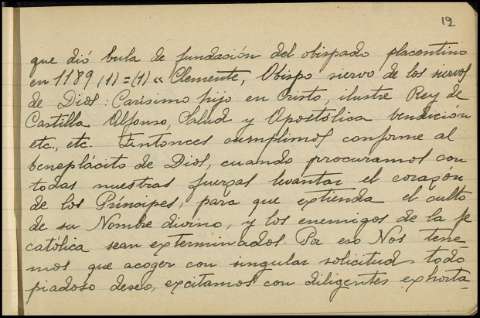 12
que dió bula de fundación del obispado placentino
en 1189 (1) = (1) « Clemente, Obispo siervo de los siervos
de Dios: Carísimo hijo en Cristo, ilustre Rey de
Castilla Alfonso, Salud y Apostólica bendición
etc., etc. Entonces cumplimos conforme al
beneplácito de Dios, cuando procuramos con
todas nuestras fuerzas levantar el corazón
de los Príncipes, para que extienda el culto
de su Nombre divino, y los enemigos de la fe
católica sean exterminados Pa eso Nos tene-
mos que acoger con singular solicitud todo
piadoso deseo, excitamos con diligentes exhorta-